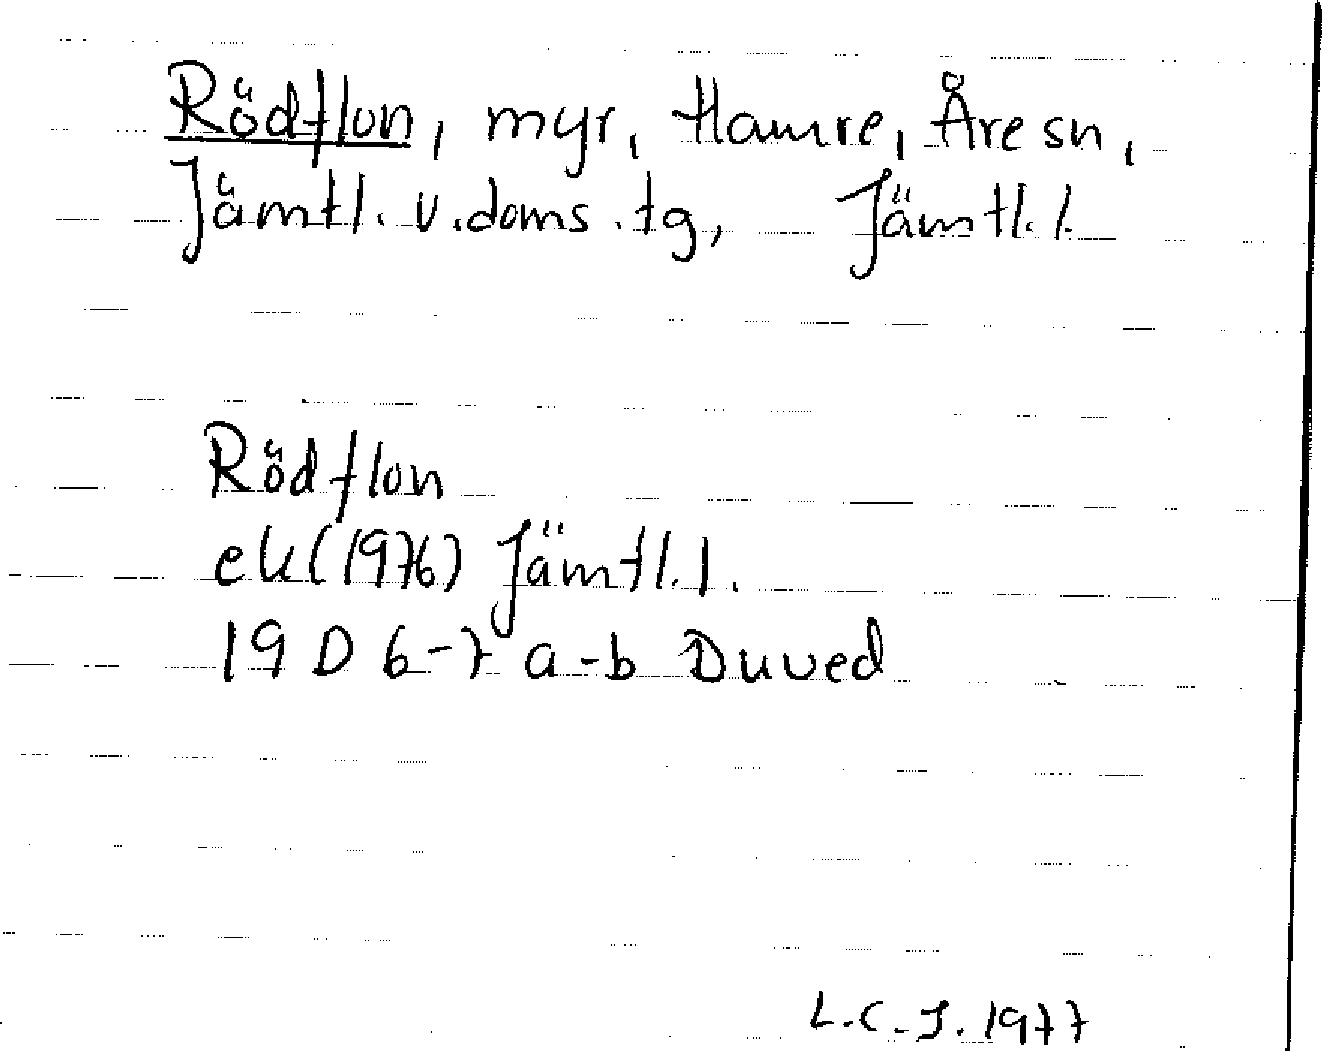 Rödflon, myr, Hamre, Åre sn,
Jämtl. v. doms. tg, Jämtl. l.
Rödflon
ek (1976) Jämtl. l.
19 D 6-7 a-b Duved
L.C-J. 1977